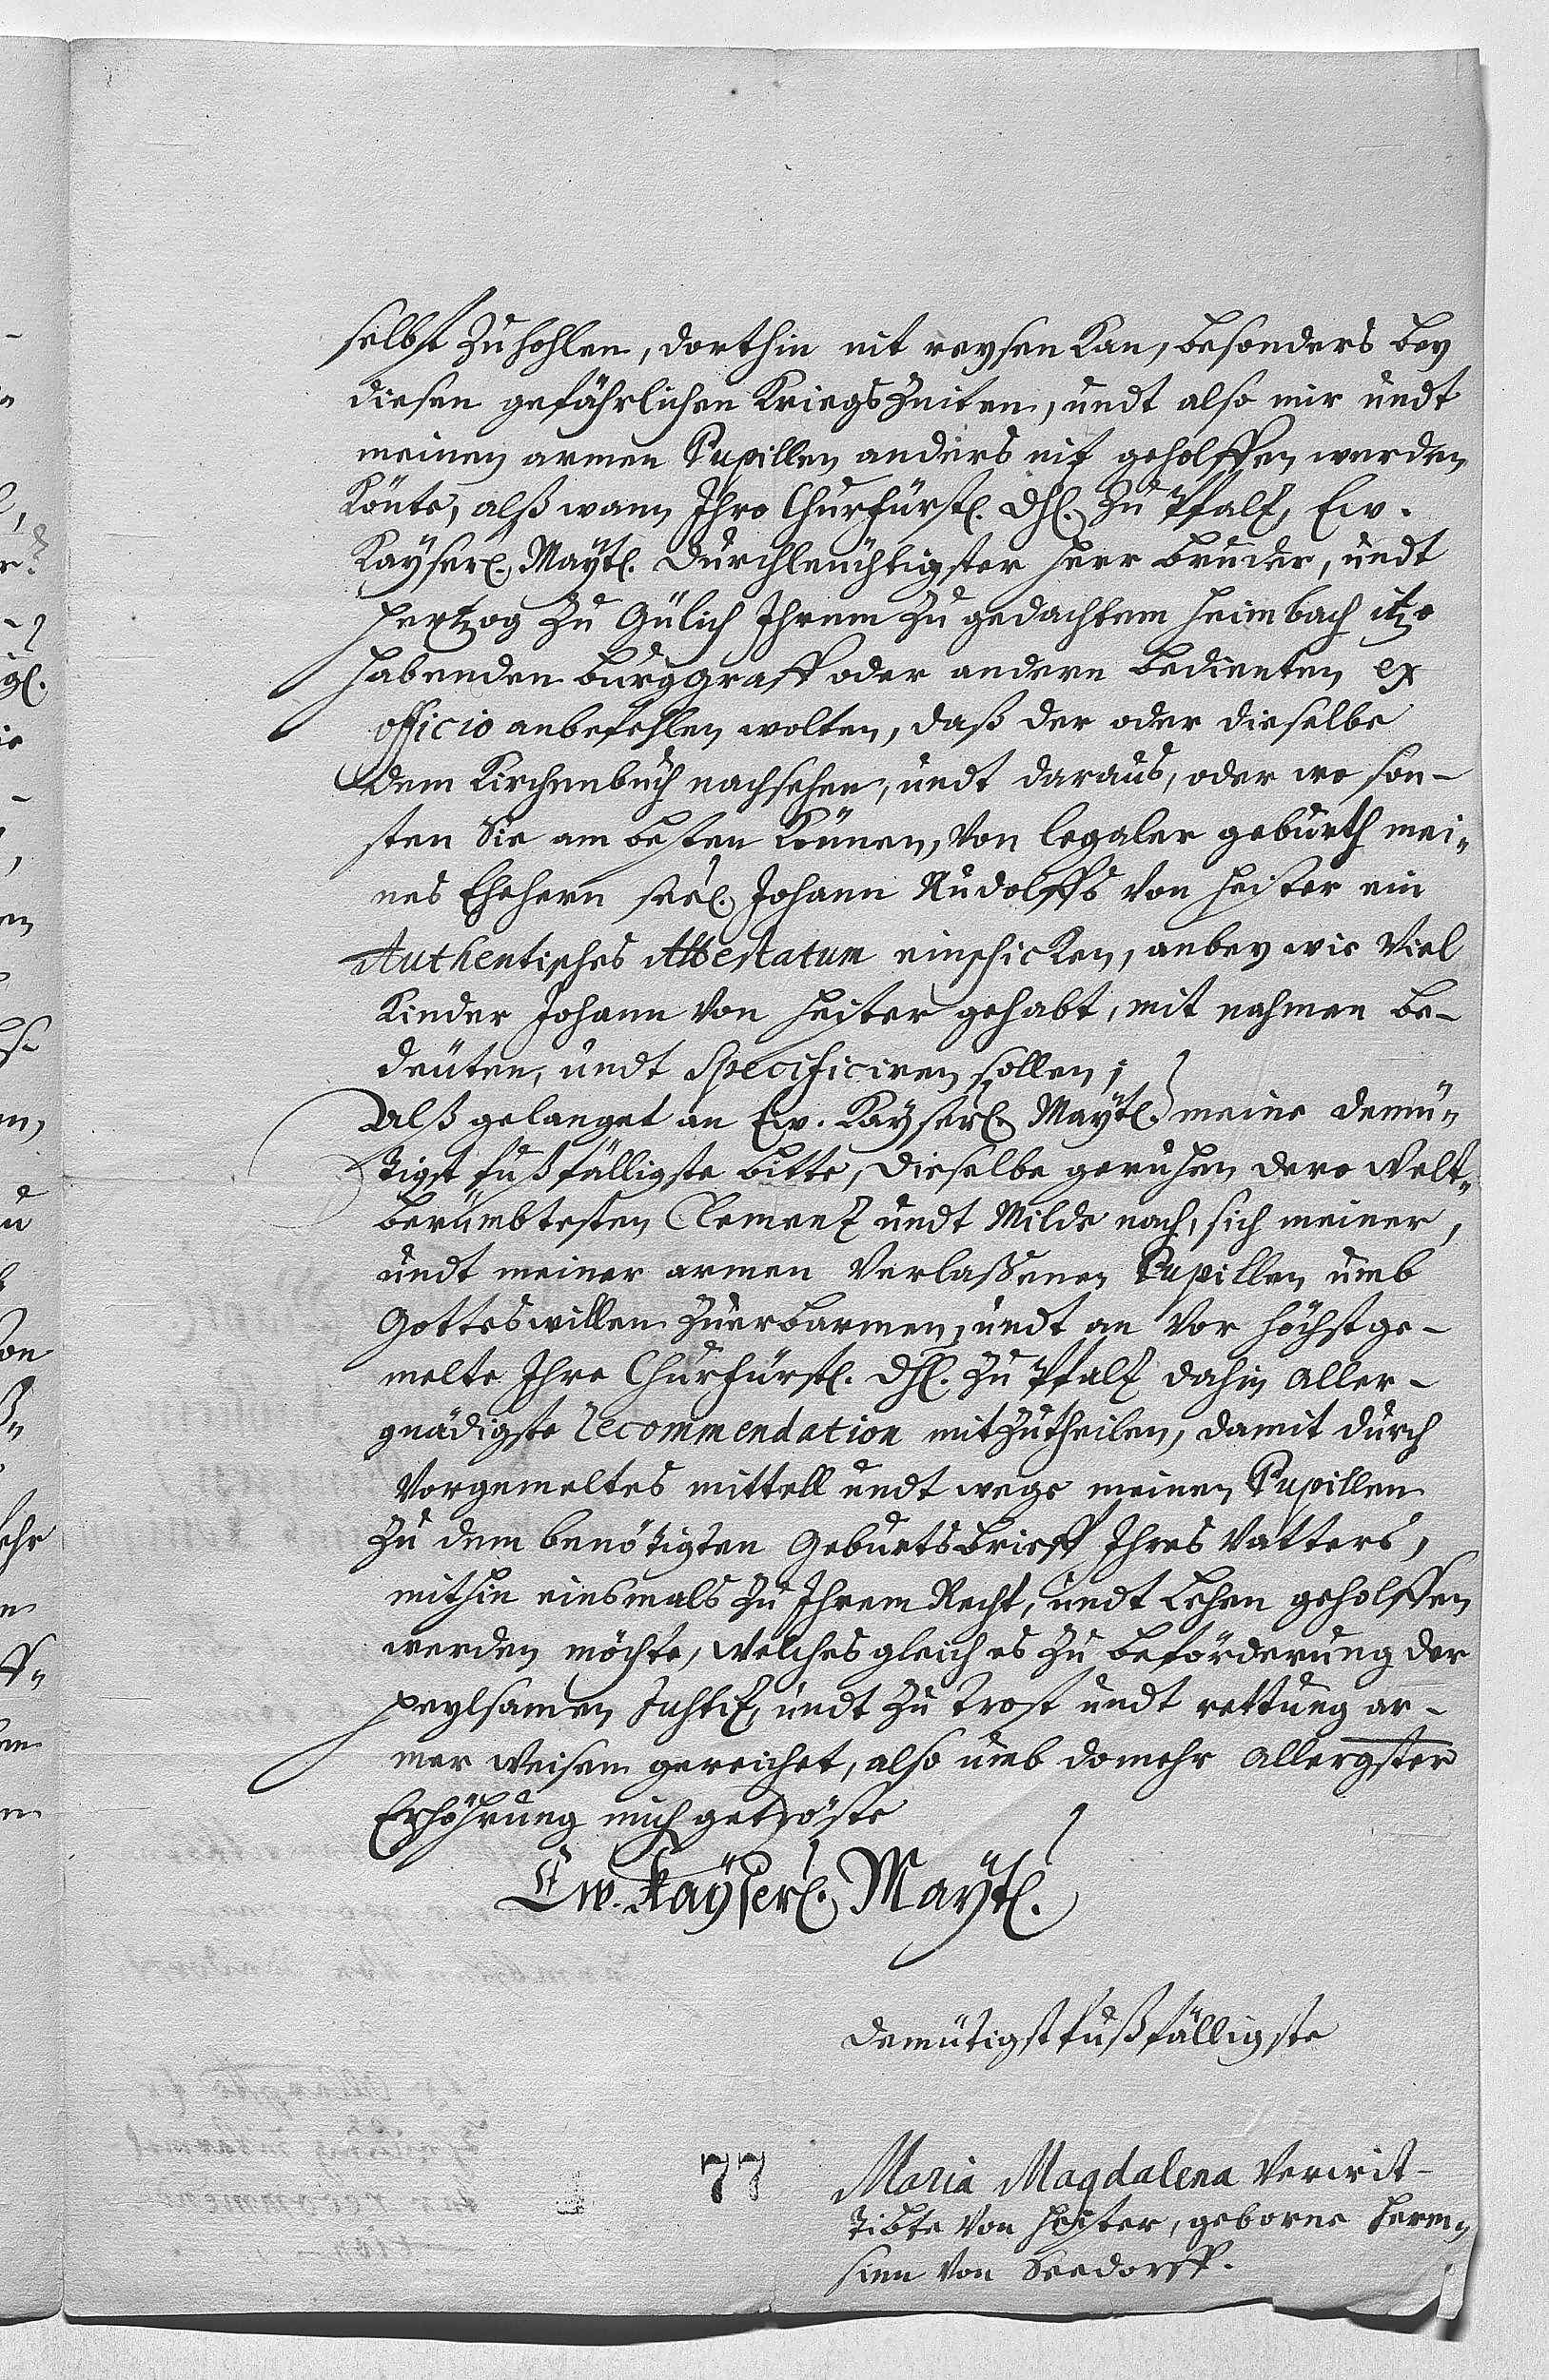 selbst Zuhohlen, dorthin nit reysen Kan, besonders bey
diesen gefährlichen KriegsZeiten, undt also mir undt
meinen armen Pupillen anders nit geholffen werden
Könte, alß wann Ihro Churfürstl. Dhl. Zu Pfaltz, Ew.
Kayserl. Maytl. Durchleuchtigster Herr Bruder, undt
Hertzog Zu Gülich Ihrem Zu gedachtem Heimbach itzo
habenden Burggraff oder andern Bedienten ex
officio anbefehlen wolten, daß der oder dieselbe
dem Kirchenbuch nachsehen, undt daraus, oder wo son-
sten Sie am besten Können, Von legaler geburth mei-
nes Eheherrn seel. Johann Rudolffs Von Heister ein
Authentisches Attestatum einschicken, anbey wie Viel
Kinder Johann Von Heister gehabt, mit nahmen be-
deuten, undt Specificiren sollen;
Alß gelanget an Ew. Kayserl. Maytl. meine demü-
tigst fußfälligste bitte, dieselbe geruhen dero Welt-
berümbtesten Clementz undt Milde nach, sich meiner,
undt meiner armen Verlaßenen Pupillen umb
Gotteswillen Zuerbarmen, undt an Vor höchstge-
melte Ihro Churfürstl. Dhl. Zu Pfaltz dahin aller-
gnädigste Recommendation mitZutheilen, damit durch
Vorgemeltes mittell undt wege meinen Pupillen
Zu dem benötigten Geburtsbrieff Ihres Vatters,
mithin einsmals Zu Ihrem Recht, undt Lehen geholffen
werden möchte, welches gleich es Zu beförderung der
heylsamen Justitz, undt Zu trost undt rettung ar-
mer Weisen gereichet, also umb domehr allergster
Erhöhrung mich getröste
Ew. Kayserl. Maytl.
demütigst fußfälligste
77
Maria Magdalena Verwit-
tibte Von Heister, geborne
von Seedorff.